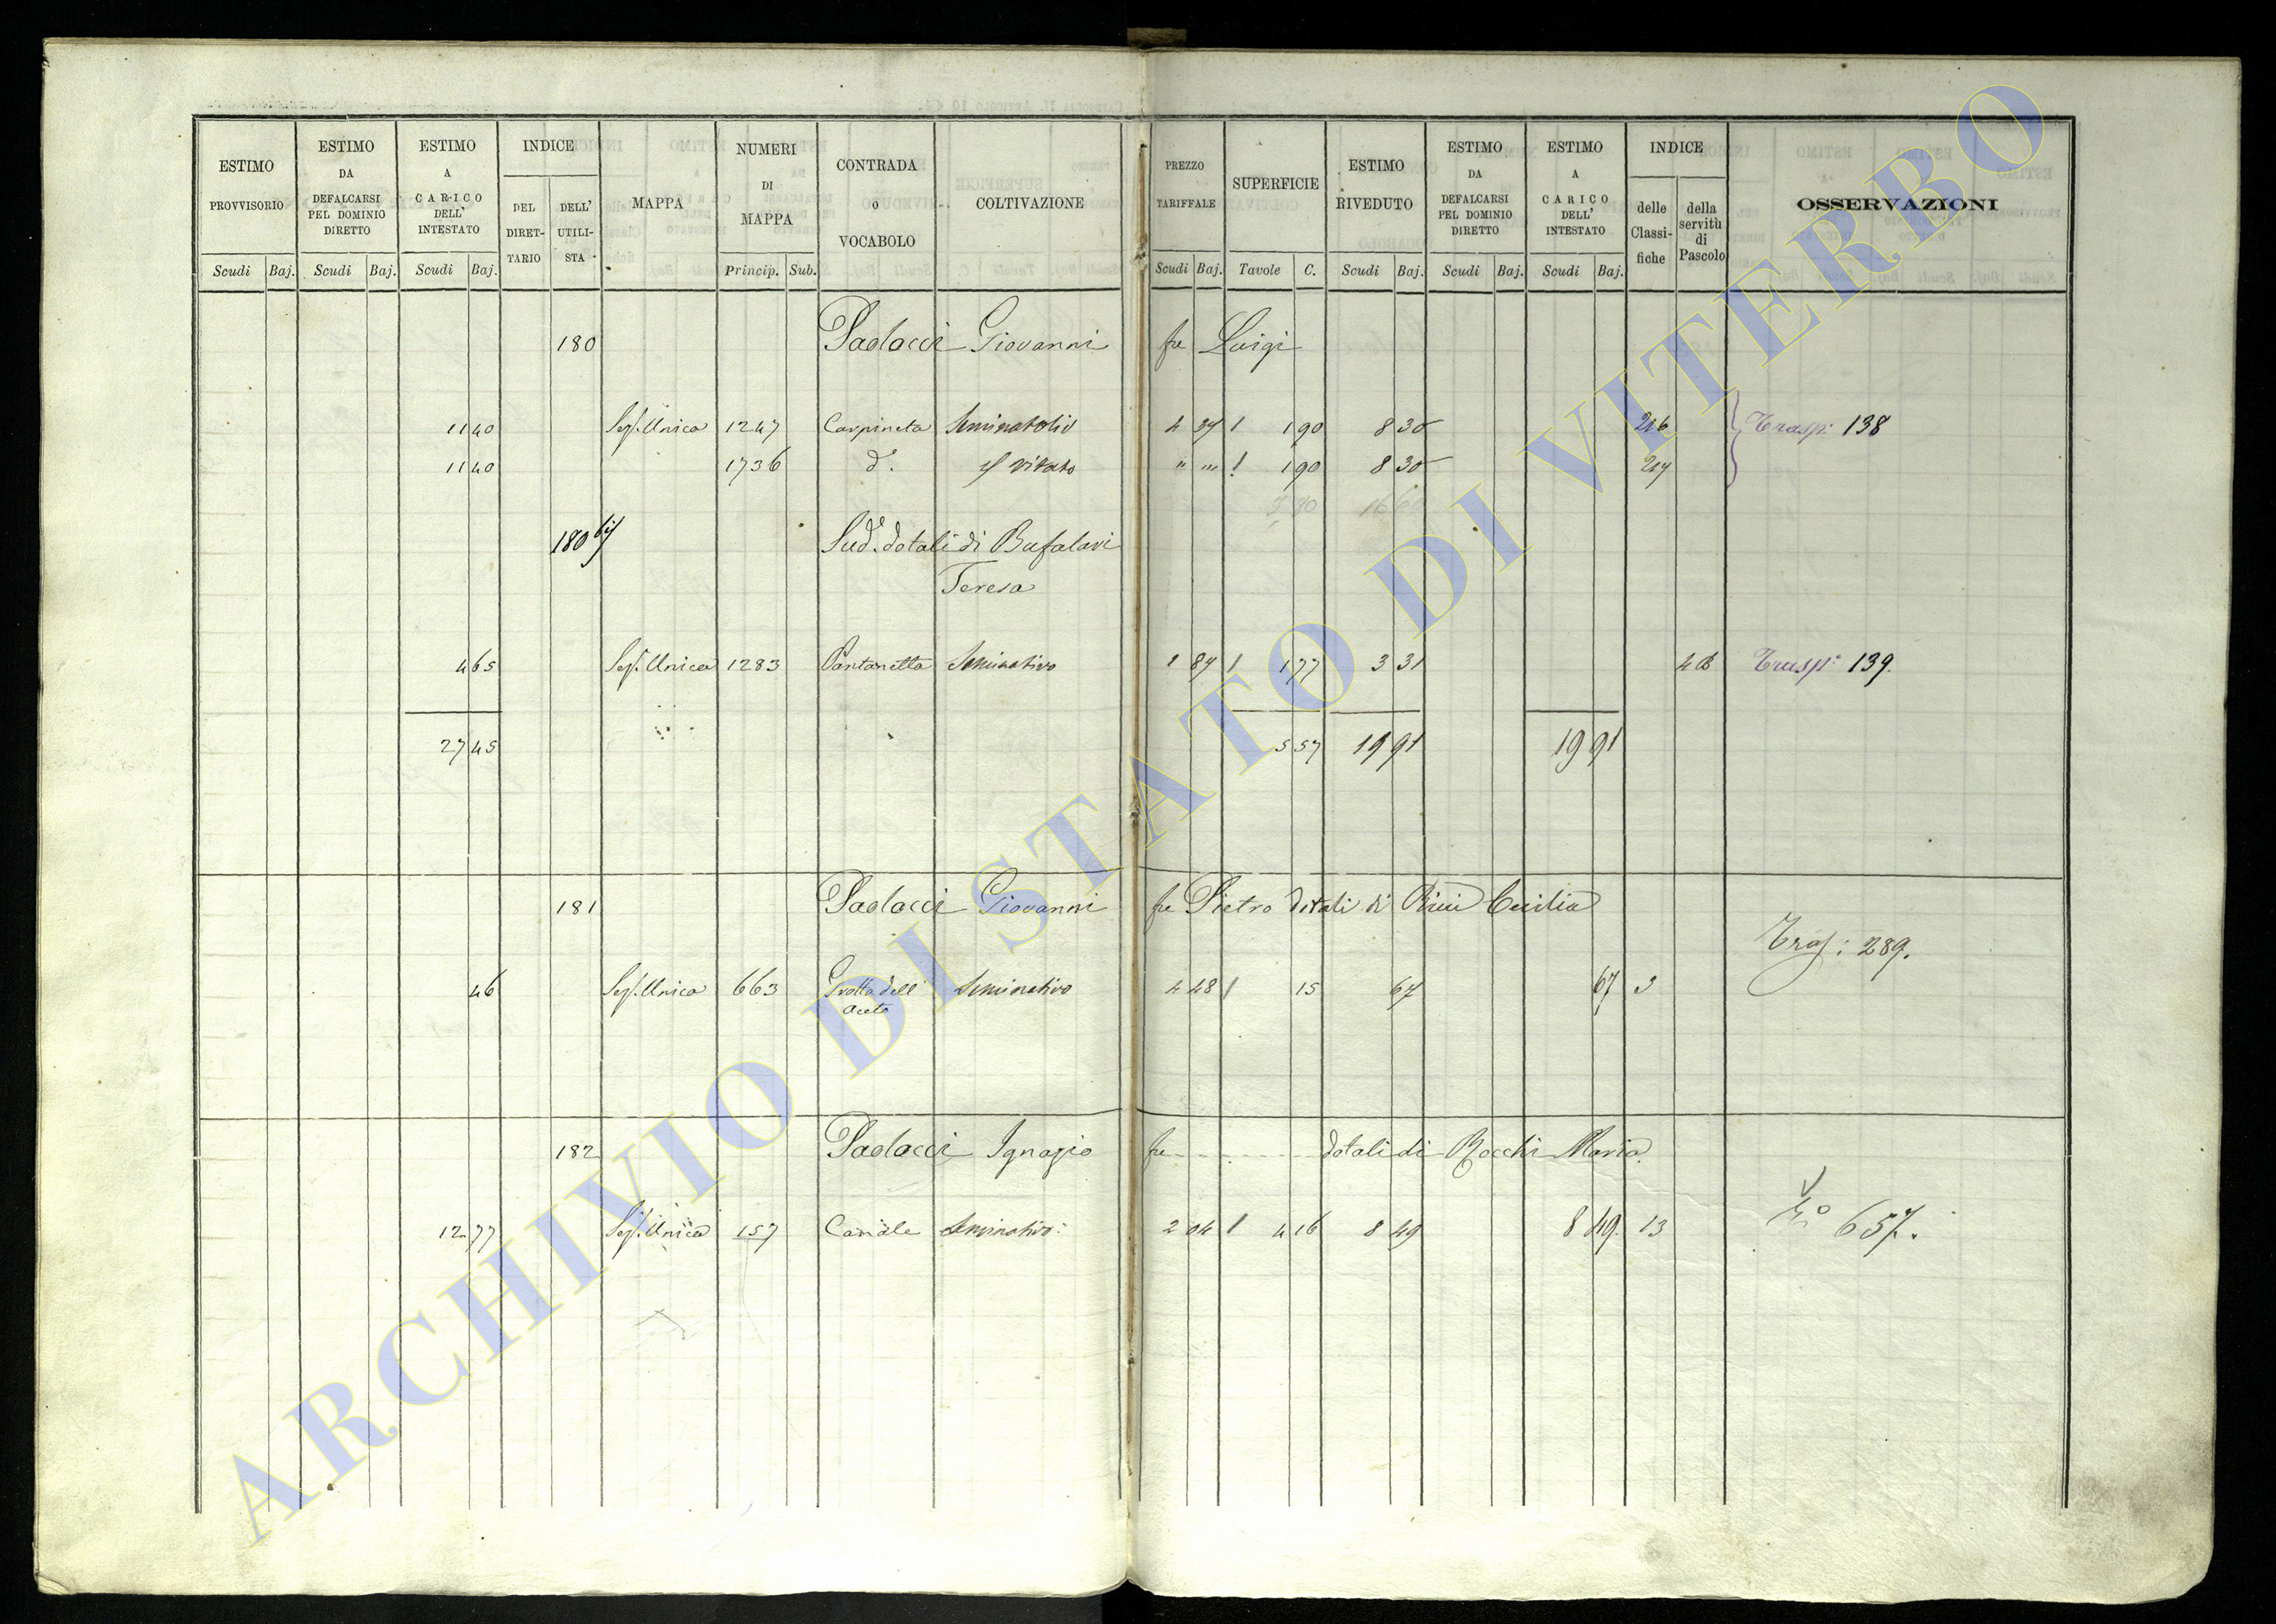 ESTIMO PROVVISORIO
ESTIMO DA DEFALCARSI PEL DOMINIO DIRETTO
ESTIMO A CARICO DELL' INTESTATO
INDICE
DEL DIRET-TARIO
DELL' UTILI-STA
MAPPA
NUMERI DI MAPPA
CONTRADA O VOCABOLO
COLTIVAZIONE
PREZZO TARIFFALE
SUPERFICIE
ESTIMO RIVEDUTO
ESTIMO DA DEFALCARSI PEL DOMINIO DIRETTO
ESTIMO A CARICO DELL' INTESTATO
INDICE
delle Classi-fiche
della servitù di Pascolo
OSSERVAZIONI
Scudi Baj. Scudi Baj. Scudi Baj. Princip. Sub. Scudi Baj. Tavole C. Scudi Baj. Scudi Baj. Scudi Baj.
180 Paolocci Giovanni fu Luigi
11 40 Sez. Unica 1247 Carpineta Seminatoliv 4 37 1 1 90 8 30 216 Trasp: 138
11 40 1736 d°. vitato " " 1 1 90 8 30 217
3 80 16 60
180 bis Sud.° dotali di Bufalari
Teresa
4 65 Sez. Unica 1283 Pantanella Seminativo 1 87 1 1 77 3 31 Trasp: 139.
27 45 5 57 19 91 19 91
181 Paolocci Giovanni fu Pietro dotali di Ricci Cecilia
Tras: 289.
46 Sez. Unica 663 Grotta dell' Aceto Seminativo 4 48 1 15 67 67
182 Paolocci Ignazio fu dotali di Rocchi Maria
12 77 Sez. Unica 157 Canale Seminativo 2 04 1 4 16 8 49 8 49 13 657.
ARCHIVIO DI STATO DI VITERBO